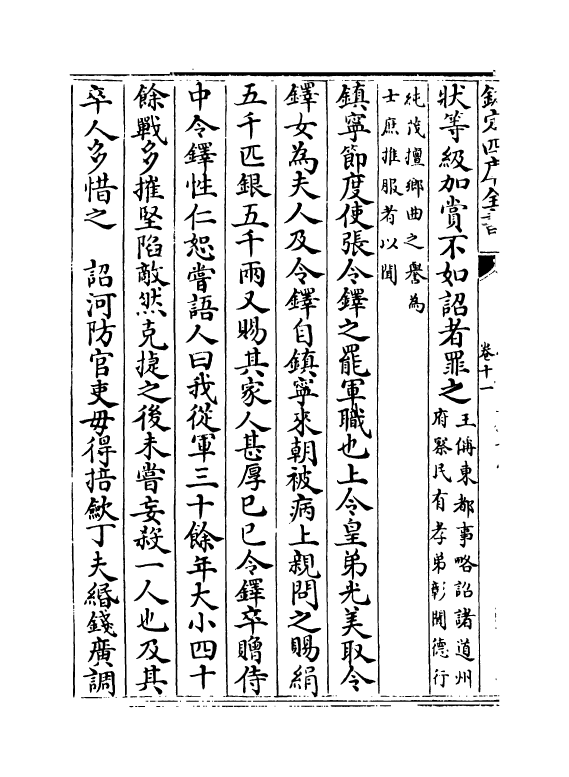 欽定四庫全書
卷十一
狀等級加賞不如詔者罪之王偁東都事略詔諸道州
府察民有孝弟彰聞德行
純茂擅鄉曲之譽為
士庶推服者以聞
鎮寧節度使張令鐸之罷軍職也上令皇弟光美取令
鐸女為夫人及令鐸自鎮寧來朝被病上親問之賜絹
五千匹銀五千兩又賜其家人甚厚己巳令鐸卒贈侍
中令鐸性仁恕嘗語人曰我從軍三十餘年大小四十
餘戰多摧堅陷敵然克捷之後未嘗妄殺一人也及其
卒人多惜之　詔河防官吏毋得掊斂丁夫緡錢廣調